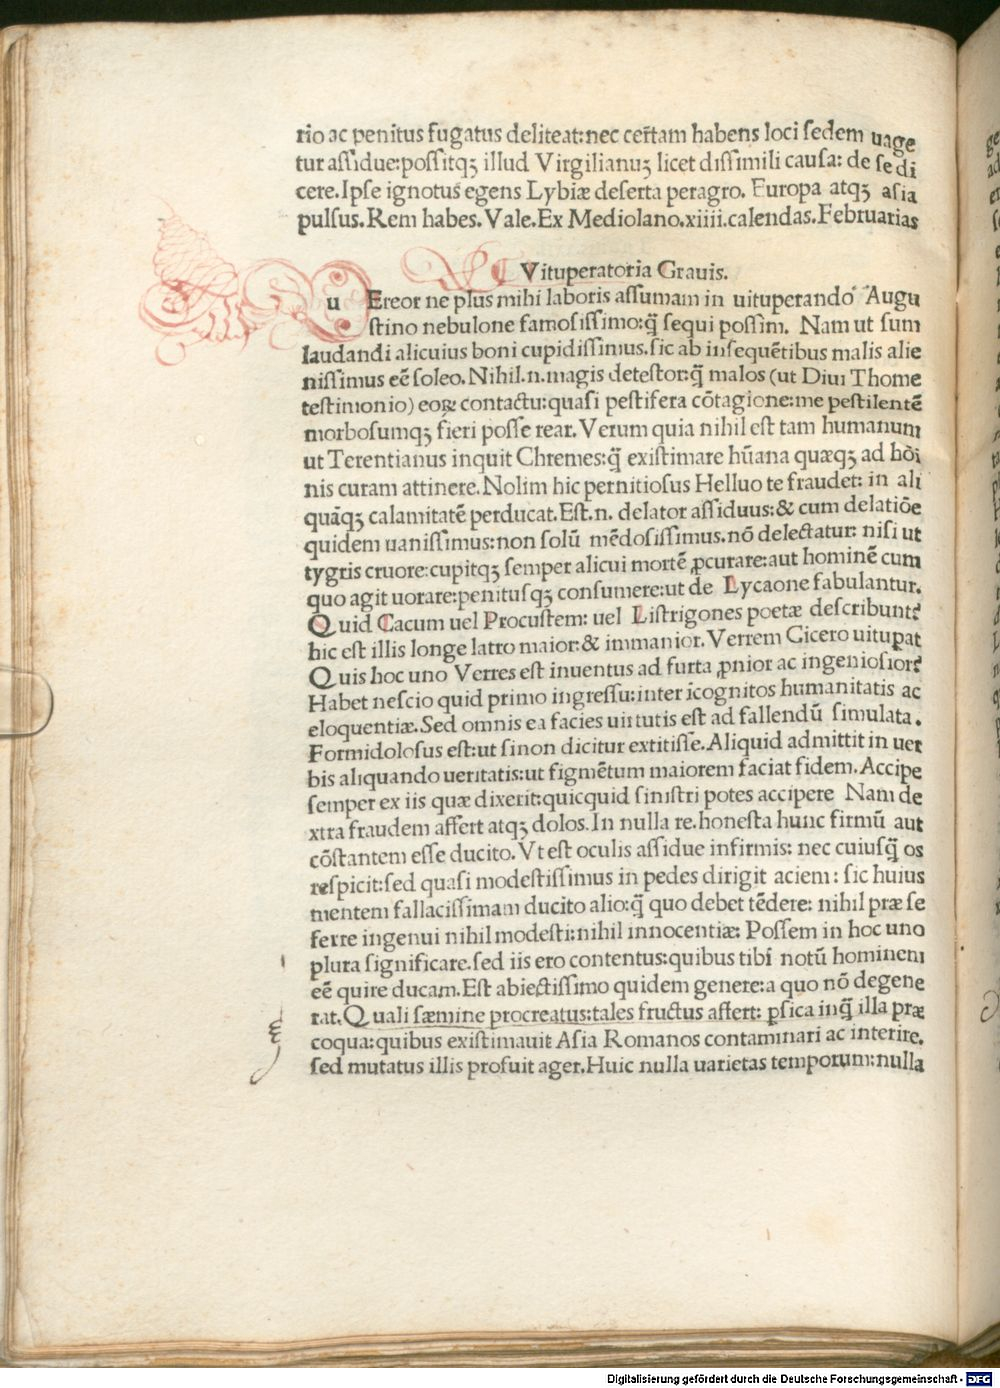 rio ac penitus fugatus deliteat:nec cer̃tam habens loci ſedem uage
tur aſſidue:poſſitqꝫ illud Virgilianuꝫ licet diſſimili cauſa: de ſe di
cere.Ipſe ignotus egens Lybiæ deſerta peragro. Europa atqꝫ aſia
pulſus.Rem habes.Vale.Ex Mediolano.xiiii.calendas.Februarias
Vituperatoria Grauis.
u Ereor ne plus mihi laboris aſſumam in uituperando Augu
ſtino nebulone famoſiſſimo:q̃ ſequi poſſim. Nam ut ſum
laudandi alicuius boni cupidiſſimus.ſic ab inſequẽtibus malis alie
niſſimus eẽ ſoleo.Nihil.n.magis deteſtor:q̃ malos (ut Diui Thome
teſtimonio) eoꝝ contactu:quaſi peſtifera cõtagione:me peſtilentẽ
morboſumqꝫ fieri poſſe rear.Verum quia nihil eſt tam humanum
ut Terentianus inquit Chremes:q̃ exiſtimare hũana quæqꝫ ad hõi
nis curam attinere.Nolim hic pernitioſus Helluo te fraudet: in ali
quãqꝫ calamitatẽ perducat.Eſt.n. delator aſſiduus:& cum delatiõe
quidem uaniſſimus:non ſolũ mẽdoſiſſimus.nõ delectatur: niſi ut
tygris cruore:cupitqꝫ ſemper alicui mortẽ ꝓcurare:aut hominẽ cum
quo agit uorare:penituſqꝫ conſumere:ut de Lycaone fabulantur.
Quid Cacum uel Procuſtem: uel Liſtrigones poetæ deſcribunt?
hic eſt illis longe latro maior:& immanior.Verrem Cicero uitupat
Quis hoc uno Verres eſt inuentus ad furta ꝓnior ac ingenioſior?
Habet neſcio quid primo ingreſſu:inter ĩcognitos humanitatis ac
eloquentiæ.Sed omnis ea facies uirtutis eſt ad fallendũ ſimulata.
Formidoloſus eſt:ut ſinon dicitur extitiſſe.Aliquid admittit in uer
bis aliquando ueritatis:ut figmẽtum maiorem faciat fidem.Accipe
ſemper ex iis quæ dixerit:quicquid ſiniſtri potes accipere Nam de
xtra fraudem affert atqꝫ dolos.In nulla re.honeſta hunc firmũ aut
cõſtantem eſſe ducito.Vt eſt oculis aſſidue infirmis: nec cuiuſq̃ os
reſpicit:ſed quaſi modeſtiſſimus in pedes dirigit aciem: ſic huius
mentem fallaciſſimam ducito alio:q̃ quo debet tẽdere: nihil præ ſe
ferre ingenui nihil modeſti:nihil innocentiæ: Poſſem in hoc uno
plura ſignificare.ſed iis ero contentus:quibus tibi notũ hominem
eẽ quire ducam.Eſt abiectiſſimo quidem genere:a quo nõ degene
rat.Quali ſæmine procreatus:tales fructus affert: ꝑſica inq̃ illa præ
coqua:quibus exiſtimauit Aſia Romanos contaminari ac interire.
ſed mutatus illis profuit ager.Huic nulla uarietas temporum:nulla
Digitalisierung gefördert durch die Deutsche Forschungsgemeinschaft - DFG